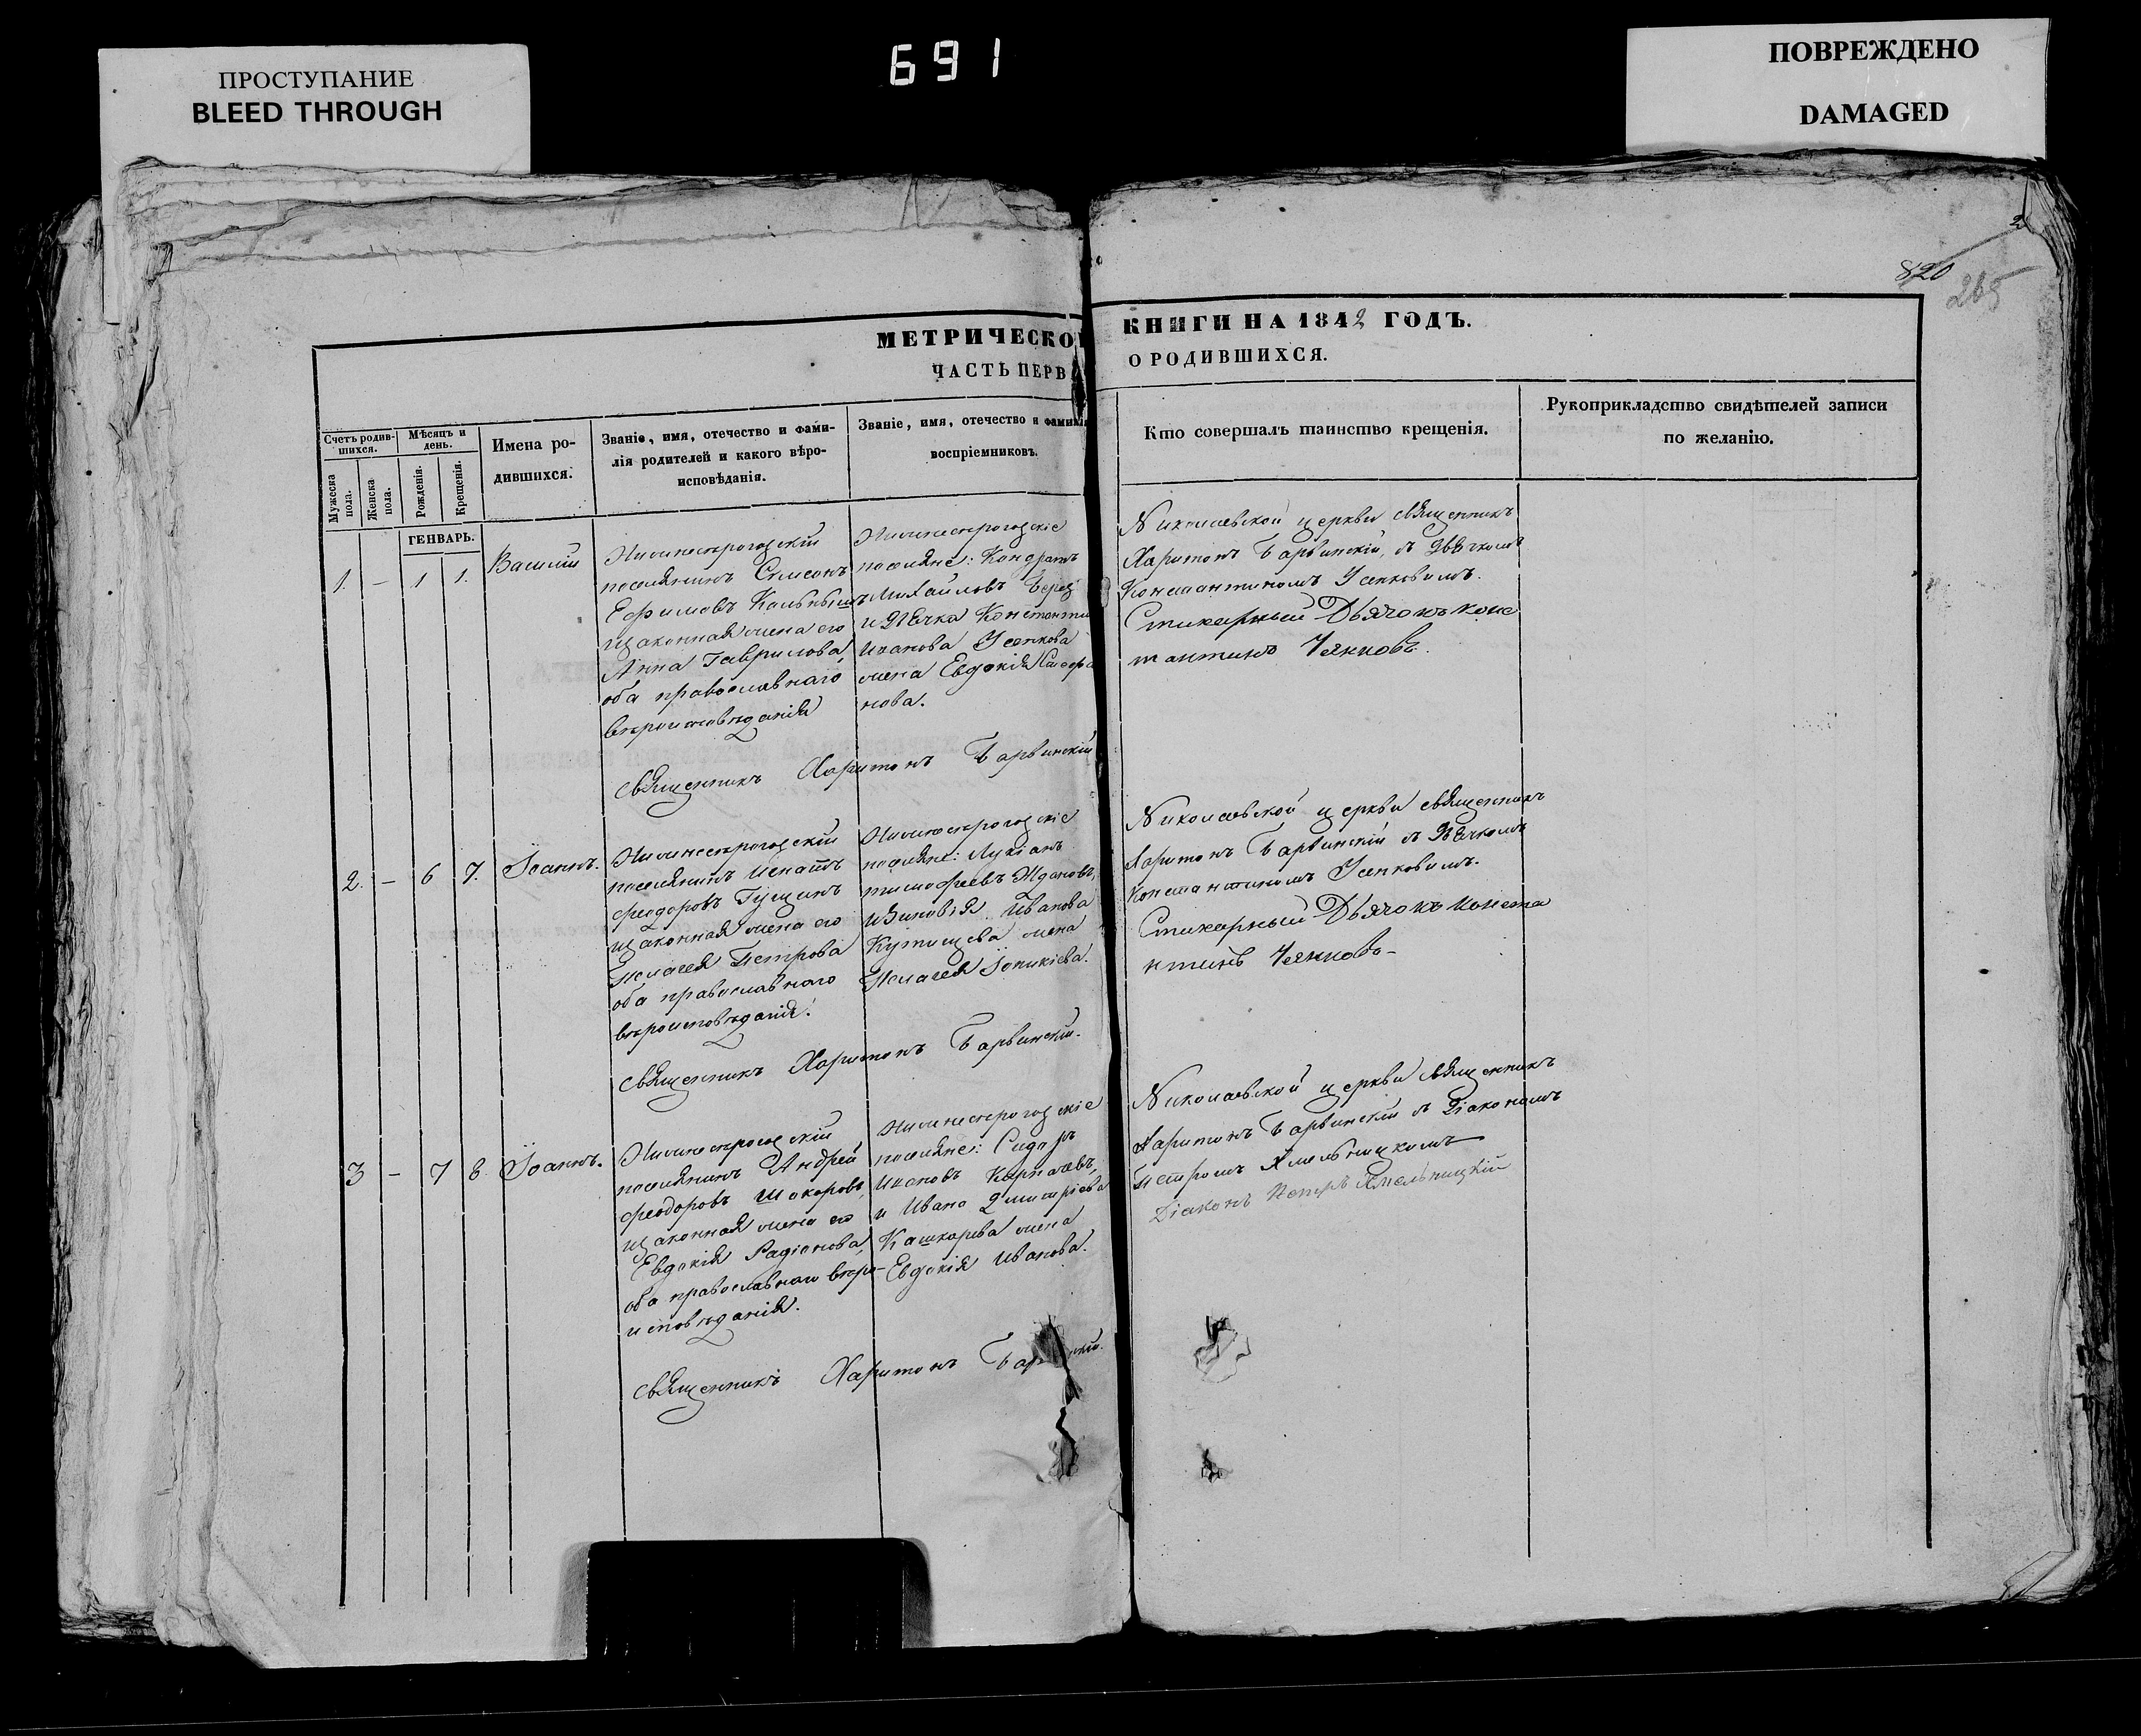 ПРОСТУПАНИЕ
BLEED THROUGH
691
ПОВРЕЖДЕНО
DAMAGED
2
820
265
МЕТРИЧЕСКОЙ КНИГИ НА 1842 ГОДЪ.
ЧАСТЬ ПЕРВ О РОДИВШИХСЯ.
Счетъ родив-
шихся.
Мѣсяцъ и
день.
Мужеска пола.
Женска пола.
Рожденія.
Крещенія.
Имена ро-
дившихся.
Званіе, имя, отечество и фами-
лія родителей и какого вѣро-
исповѣданія.
Званіе, имя, отечество и фамилія
воспріемниковъ.
Кто совершалъ таинство крещенія.
Рукоприкладство свидѣтелей записи
по желанію.
ГЕНВАРЬ.
1. – 1 1. Василій
Нижнесѣрогозскій
поселянинъ Симеонъ
Ефимовъ
изаконная жена его
Анна Гаврилова,
оба православнаго
вѣроисповѣданія
Нижнесѣрогозскіе
поселяне: Кондратъ
Михайловъ
и дьячка Константи
Иванова Усенкова
жена Евдокія
нова.
Николаевской церкви священникъ
Харитонъ Барвинскій, съ дьячкомъ
Константиномъ Усенковымъ.
Стихарный Дьячокъ Конс
тантинъ Усенковъ.
священникъ Харитонъ Барвинскій
2. – 6 7. Іоаннъ.
Нижнесѣрогозскій
поселянинъ Игнатъ
Феодоровъ Гущинъ
изаконная жена его
Пелагея Петрова
оба православнаго
вѣроисповѣданія.
Нижнесѣрогозскіе
поселяне: Лукіанъ
тимофеевъ Ждановъ,
иЗиновія Иванова
жена
Пелагея
Николаевской церкви священникъ
Харитонъ Барвинскій съ дьячкомъ
Константиномъ Усенковымъ.
Стихарный Дьячокъ Конста
нтинъ Усенковъ-
священникъ Харитонъ Барвинскій.
3 – 7 8. Іоаннъ.
Нижнесѣрогозскій
поселянинъ Андрей
Феодоровъ Шокоровъ,
изаконная жена его
Евдокія Радіонова,
оба православнаго вѣро-
исповѣданія.
Нижнесѣрогозскіе
поселяне: Сидоръ
Ивановъ
и Ивана Димитріева
Кашкарева жена
Евдокія Иванова.
Николаевской церкви священникъ
Харитонъ Барвинскій съ Діакономъ
Петромъ Хмельницкимъ
Діаконъ Петръ Хмельницкій
священникъ Харитонъ